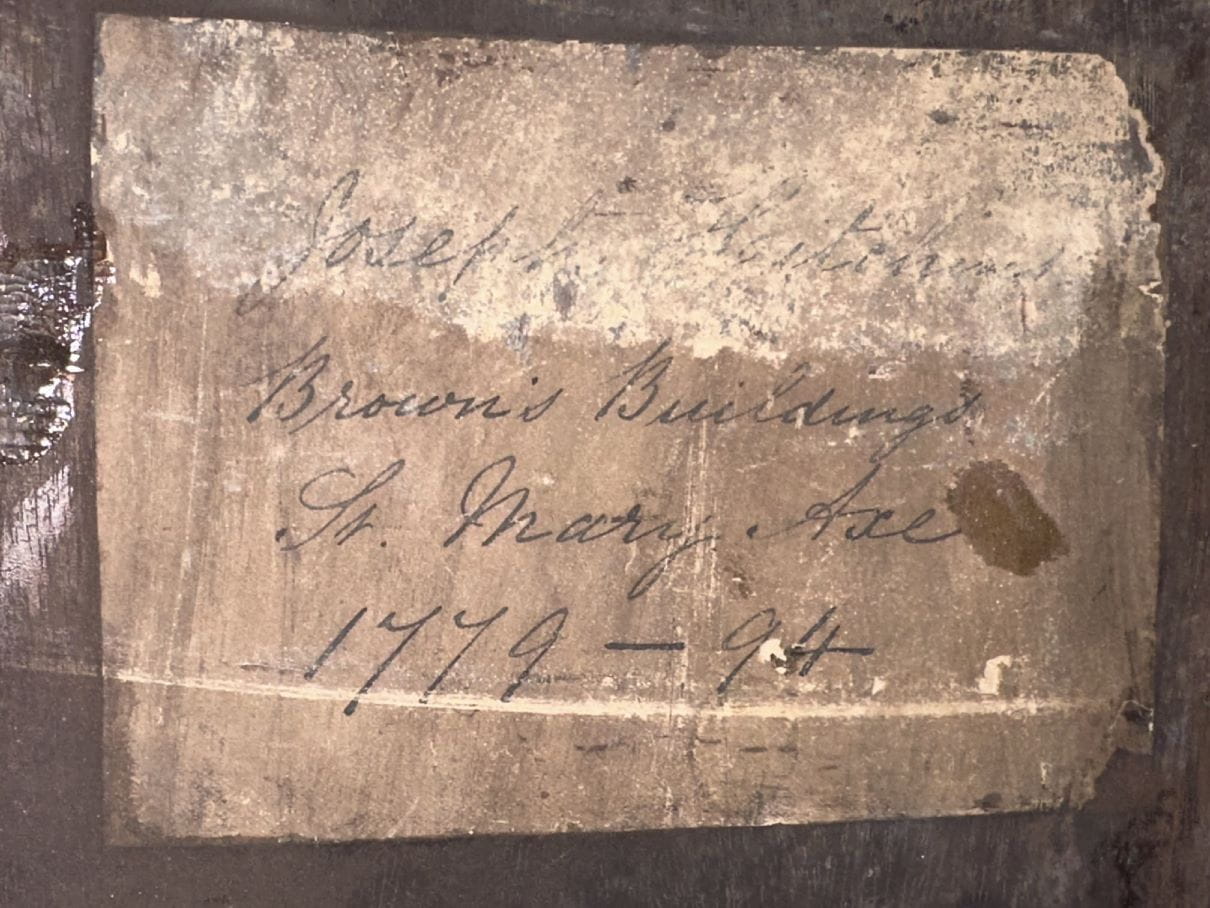 Joseph
Brown's Buildings
St. Mary Axe
1779 — 94